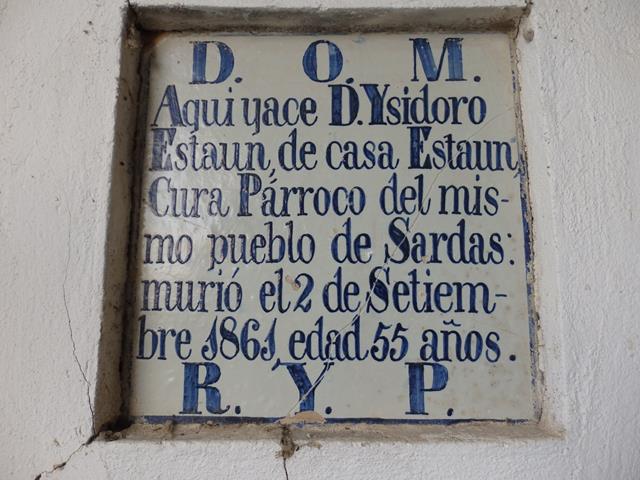 D. O. M.
Aqui yace D. Ysidoro
Estaun, de casa Estaun,
Cura Párroco del mis-
mo pueblo de Sardas:
murió el 2 de Setiem-
bre 1861, edad 55 años.
R. Y. P.